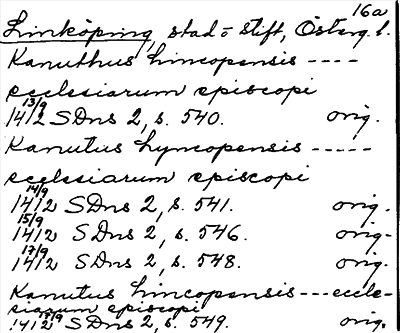 16a
Linköping, stad o stift, Österg. l.
Kanuthus lincopensis ----
ecclesiarum episcopi
13/9
1412 SDns 2, s. 540. orig.
Kanutus lyncopensis -----
ecclesiarum episcopi
14/9
1412 SDns 2, s. 541. orig.
15/9
1412 SDns 2, s. 546. orig.
17/9
1412 SDns 2, s. 548. orig.
Kanutus lincopensis --- eccle-
siarum episcopi
1412 SDns 2, s. 549. orig.